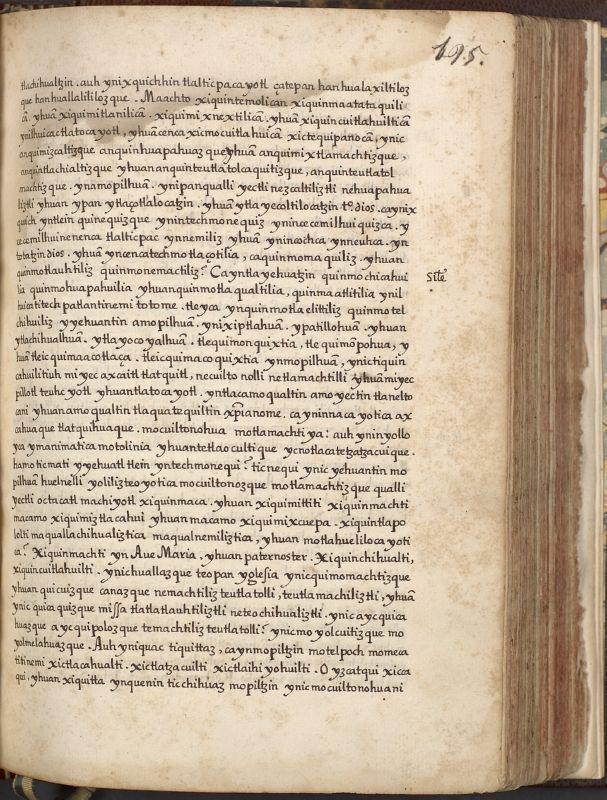 195.
tlachihualtzin. auh ynixquichhin tlalticpacayotl çatepan hanhualaxiltiloz
que hanhuallalililoz que. Maachto xiquintemolican xiquinmaatataquili
cā. yhuā xiquimitlanilicā. xiquimixnextilicā. yhuā xiquincuitlahuilticā
ynilhuicactlatocayotl, yhuā cenca xicmocuitlahuicā xictequipanocā, ynic
anquimizcaltizque anquinhuapahuazque yhuan anquimixtlamachtizque,
anquintlachialtizque yhuan anquinteutlatolcaquitizque, anquinteutlatol
machtizque. ynamopilhuā. ynipanqualli yectli nezcaltiliztli nehuapahua
liztli yhuan ypan ytlaçotlalocatzin. yhuā ytlayecoltilocatzin to. dios. ca yn ix
quich yntlein quinequizque ynintechmonequiz ynincecemilhuiquizca. y
cecemilhuinenenca tlalticpac ynnemiliz yhuā ynincochca ynneuhca. yn
totatzin dios. yhuā yncenca techmotlaçotilia, ca quinmomaquiliz. yhuan
quinmotlauhtiliz quinmonemactiliz? Ca yntla yehuatzin quinmochicahui
lia quinmohuapahuilia yhuan quinmotlaqualtilia, quinmaatlitilia ynil
huicatitech patlantinemi totome. tleyca ynquinmotlaelittiliz quinmotel
chihuiliz yyehuantin amopilhuā. ynixiptlahuā. ypatillohuā. yhuan
ytlachihualhuā. ytlayocoyalhuā. tlequimonquixtia, tlequimōpohua, y
huā tleic quimaacotlaça. tleic quimacoquixtia ynmopilhuā, ynictiquin
cahuilitiuh miyec axcaitl tlatquitl, necuiltonolli netlamachtilli yhuā miyec
pillotl teuhcyotl yhuantlatocayotl. yntlacamo qualtin amo yectin tlanelto
cani yhuan amo qualtin tlaquatequiltin xp̄ianome. ca ynin nacayotica ax
cahuaque tlatquihuaque. mocuiltonohua motlamachtiya: auh yninyollo
yca ymanimatica motolinia yhuantetlaoculti que ycnotlacatzatzacuique.
hamo ticmati yyehuatl tlein yntechmonequi? ticnequi ynic yehuantin mo
pilhuā huelnelli yoliliz teoyotica mocuiltonozque motlamachtizque qualli
yectli octacatl machiyotl xiquinmaca. yhuan xiquimittiti xiquinmachti
macamo xiquimiztlacahui yhuan macamo xiquimixcuepa. xiquintlapo
lolti maqualla chihualiztica maqualnemiliztica, yhuan motlahuelilocayoti
ca? Xiquinmachti yn Aue Maria. yhuan paternoster. Xiquinchihualti,
xiquincuitlahuilti. ynichuallazque teopan yglesia ynicquimomachtizque
yhuan quicuizque canazque nemachtiliz teutlatolli, teutlamachiliztli, yhuā
ynic quicaquizque missa tlatlatlauhtiliztli neteochihualiztli. ynicaycquica
huazque aycquipolozque temachtiliz teutlatolli? ynicmoyolcuitizque mo
yolmelahuazque. Auh yniquac tiquittaz, ca ynmopiltzin motelpoch momeca
titinemi xictlacahualti. xictlatzacuilti xictlaihiyohuilti. O yzcatqui xicca
qui, yhuan xiquitta ynquenin ticchihuaz mopiltzin ynicmocuiltonohuani